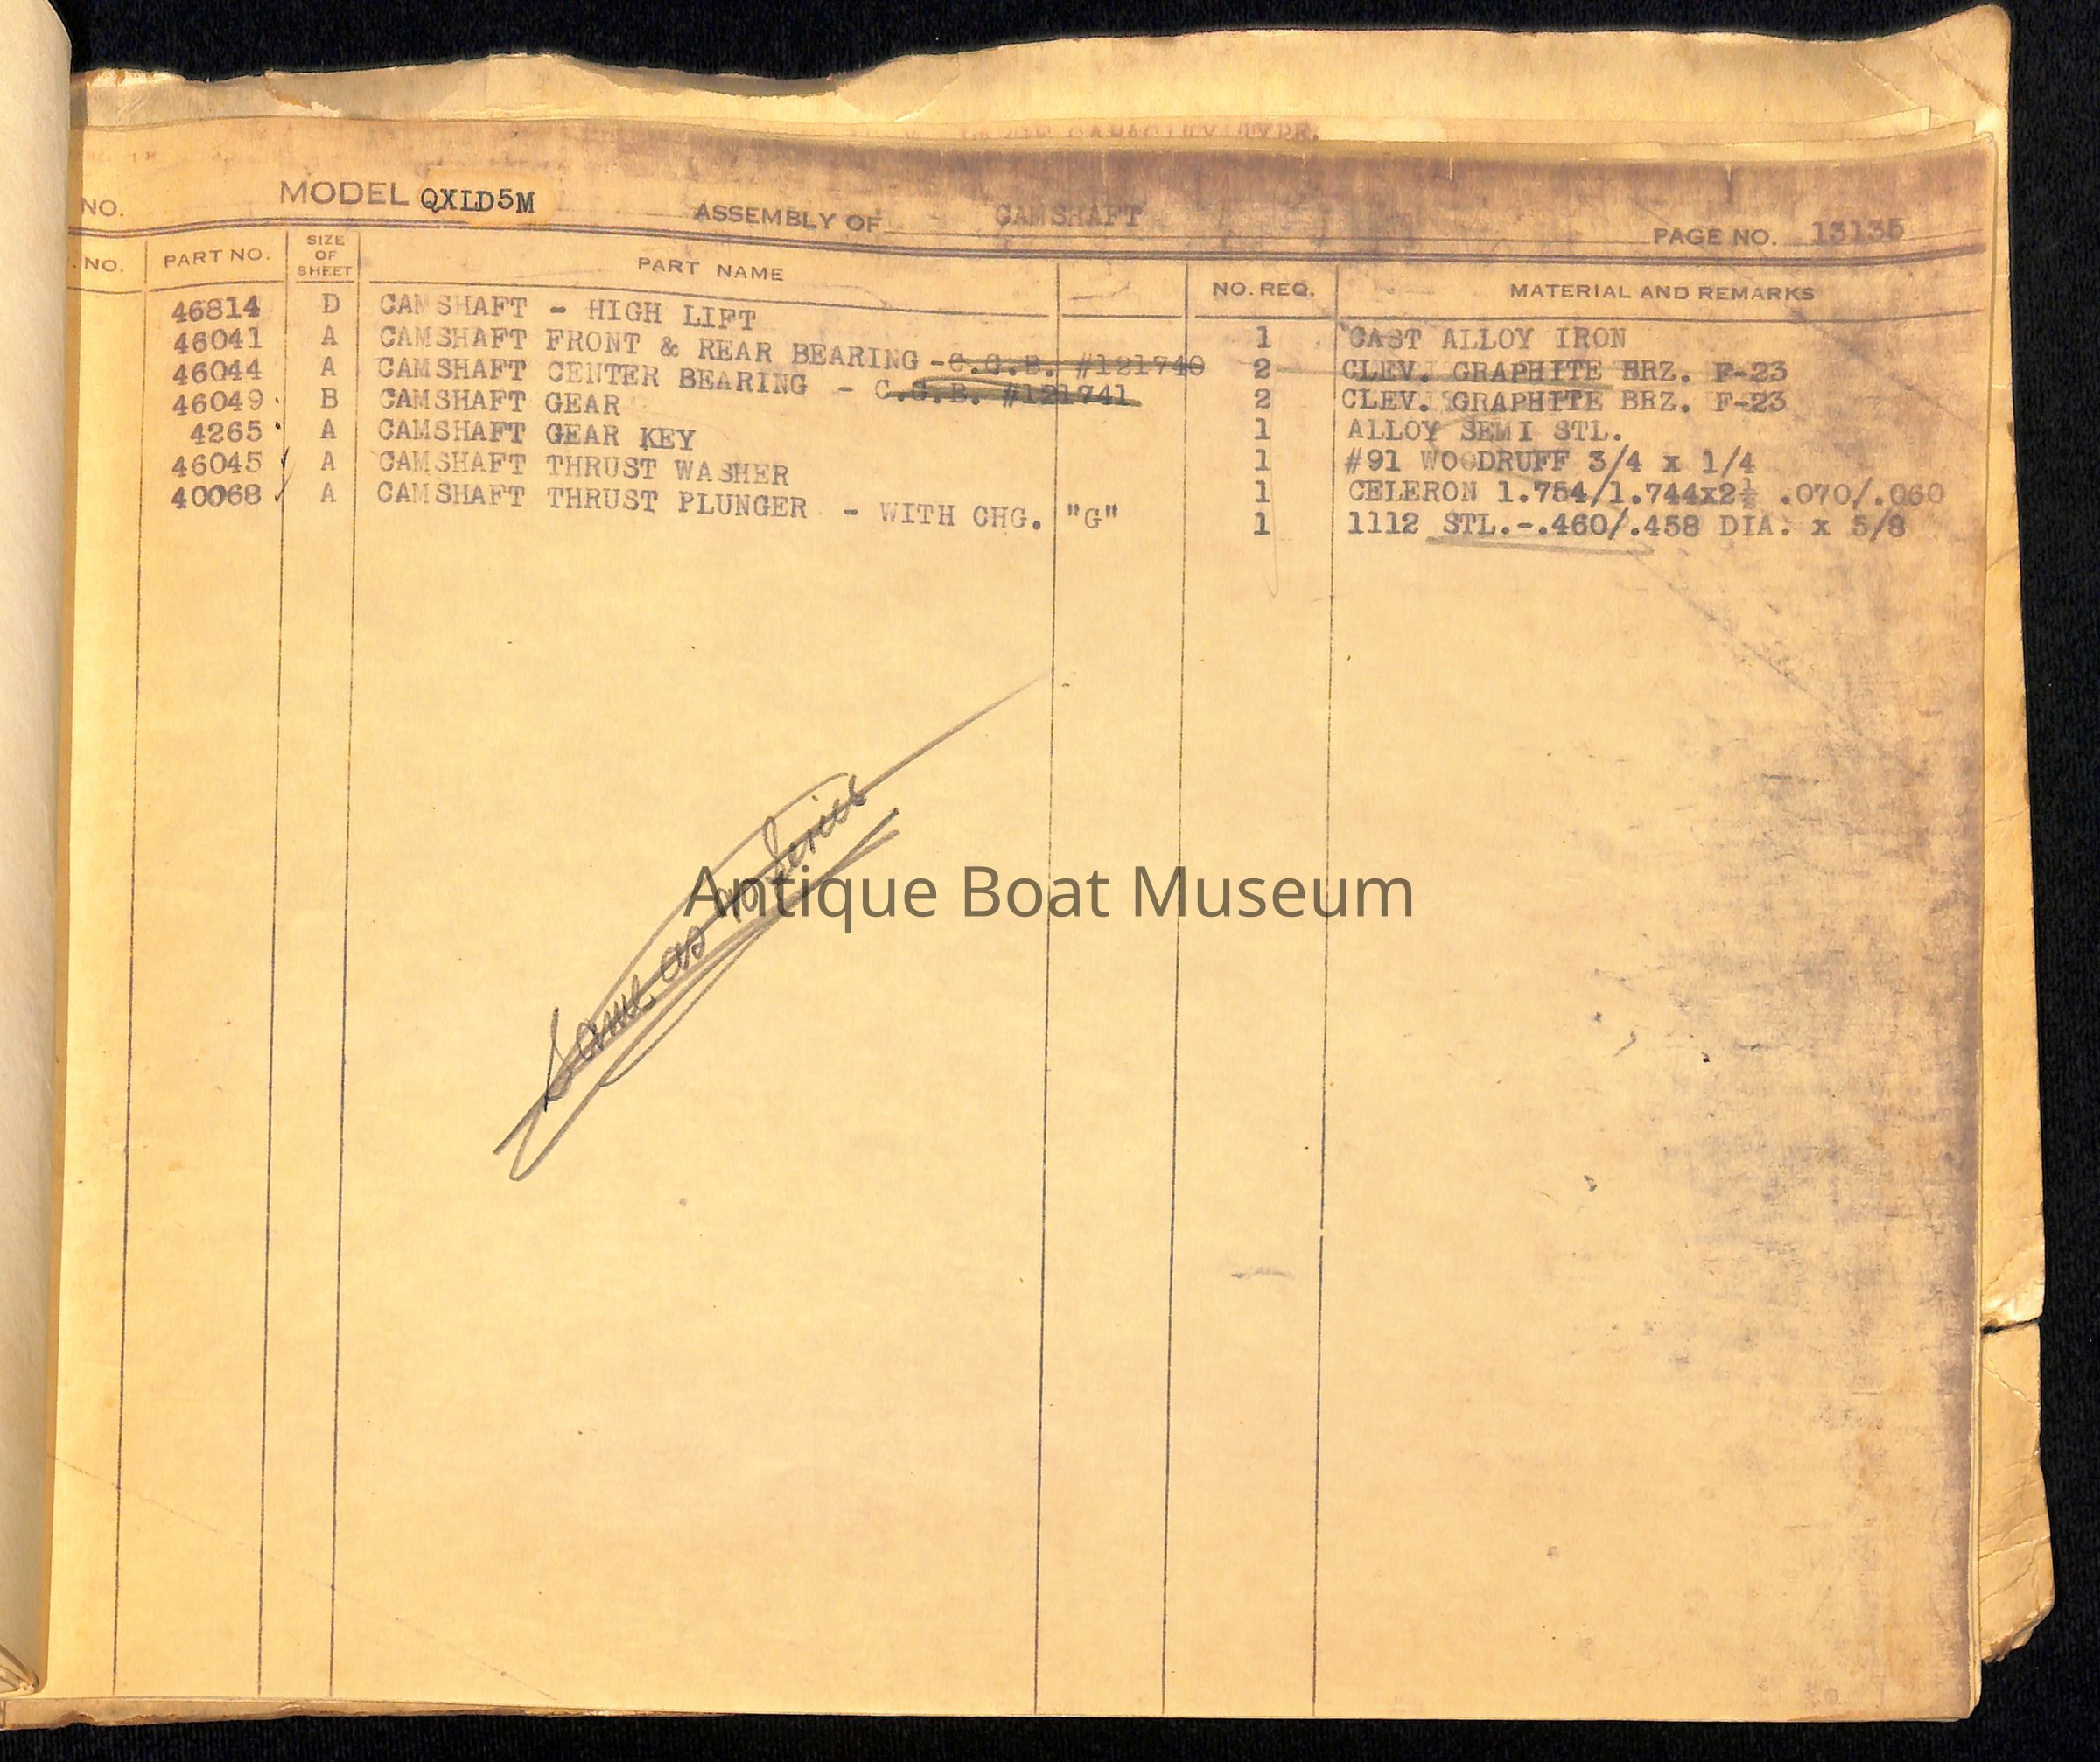 NO. MODEL QXLD5M ASSEMBLY OF CAMSHAFT PAGE NO. 13135
NO. PART NO. SIZE OF SHEET PART NAME NO. REQ. MATERIAL AND REMARKS
46814 D CAMSHAFT - HIGH LIFT 1 CAST ALLOY IRON
46041 A CAMSHAFT FRONT & REAR BEARING - C.G.B. #121740 2 CLEV. GRAPHITE BRZ. F-23
46044 A CAMSHAFT CENTER BEARING - C.G.B. #121741 2 CLEV. GRAPHITE BRZ. F-23
46049 B CAMSHAFT GEAR 1 ALLOY SEMI STL.
4265 A CAMSHAFT GEAR KEY 1 #91 WOODRUFF 3/4 x 1/4
46045 A CAMSHAFT THRUST WASHER 1 CELERON 1.754/1.744x2½ .070/.060
40068 A CAMSHAFT THRUST PLUNGER - WITH CHG. "G" 1 1112 STL.-.460/.458 DIA. x 5/8
Same as Series
Antique Boat Museum